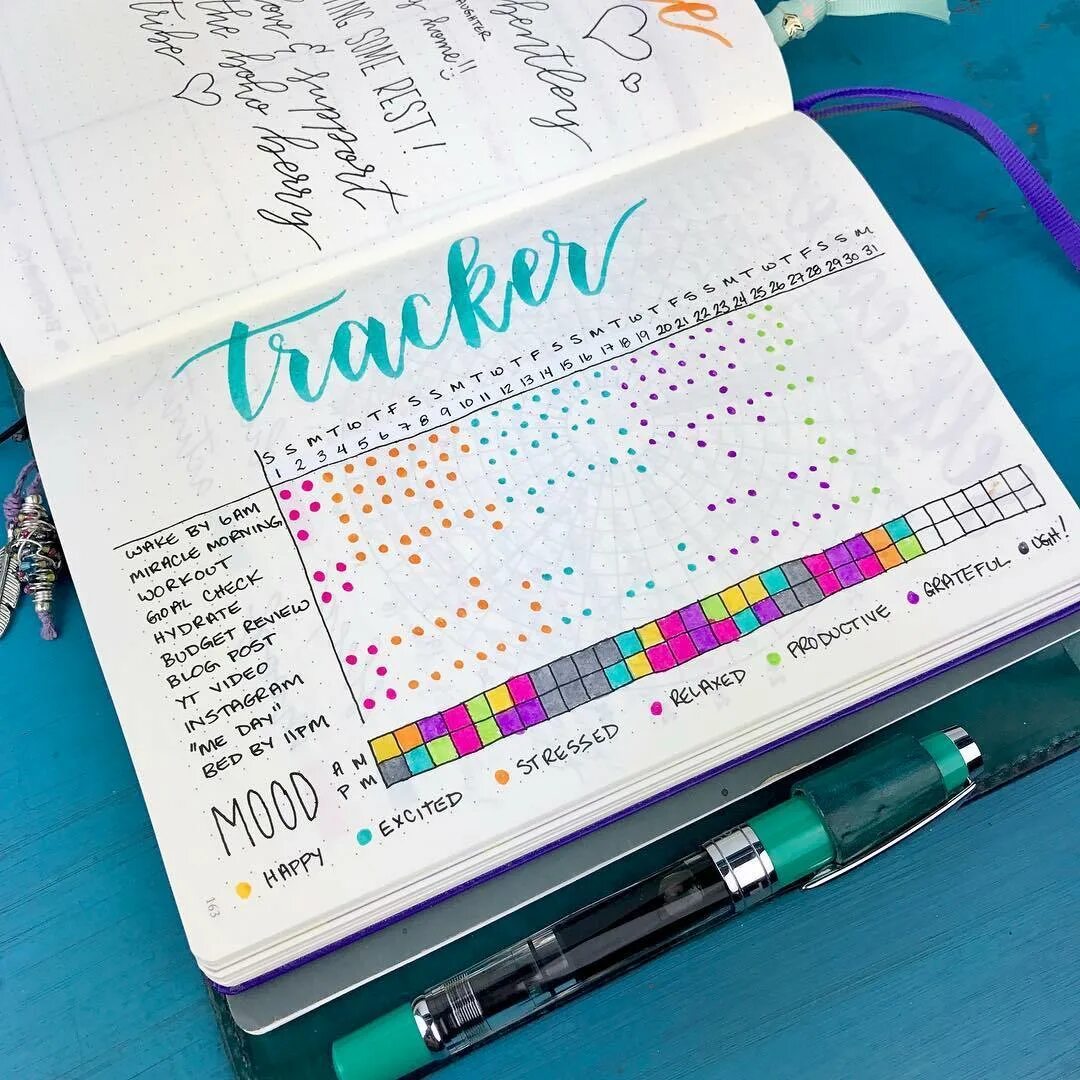 Bentley
DAUGHTER
home!!
SOME REST!
& support
the boho berry
tribe
tracker
S S M T W T F S S M T W T F S S M T W T F S S M T W T F S S M
1 2 3 4 5 6 7 8 9 10 11 12 13 14 15 16 17 18 19 20 21 22 23 24 25 26 27 28 29 30 31
WAKE BY 6AM
MIRACLE MORNING
WORKOUT
GOAL CHECK
HYDRATE
BUDGET REVIEW
BLOG POST
YT VIDEO
INSTAGRAM
"ME DAY"
BED BY 11PM
MOOD
AM
PM
HAPPY EXCITED STRESSED RELAXED PRODUCTIVE GRATEFUL UGH!
163